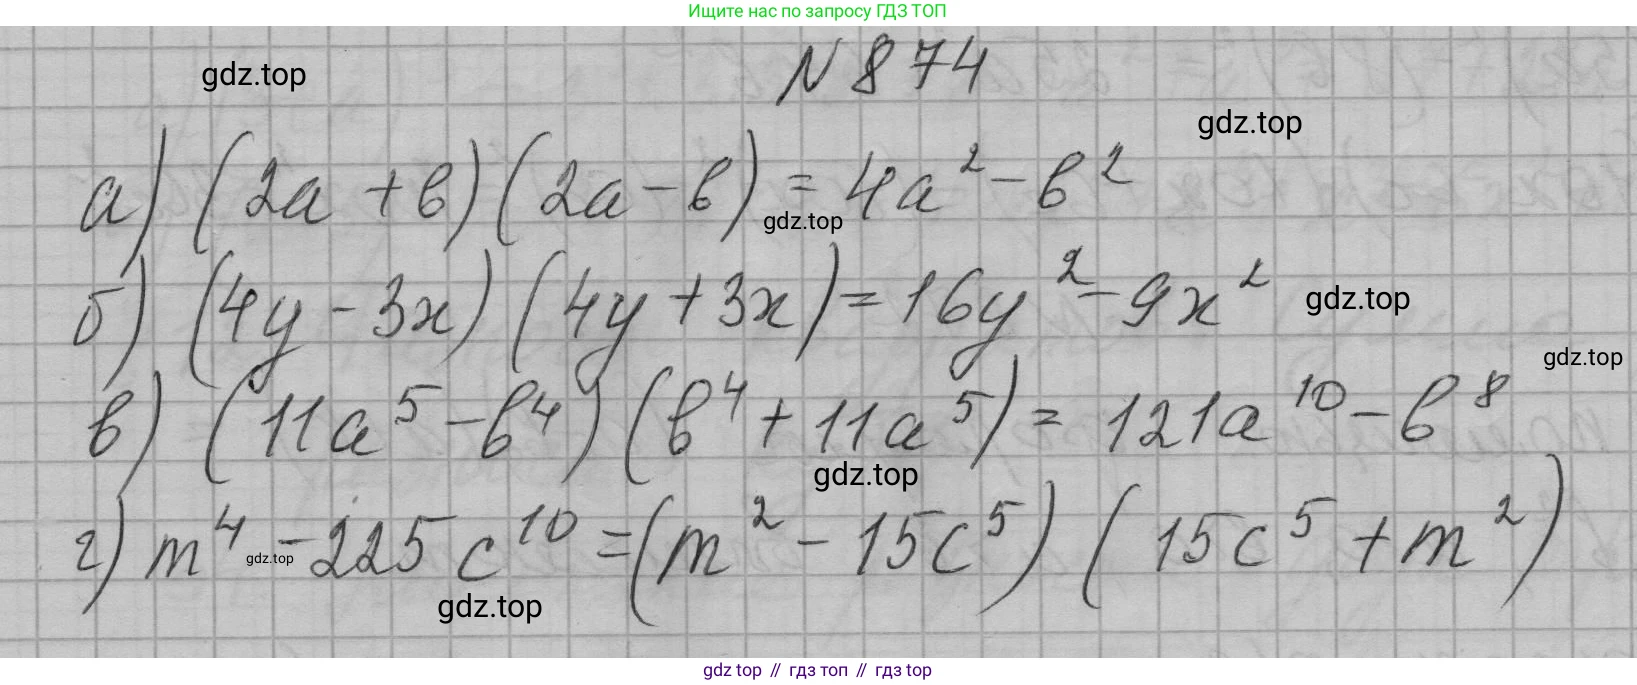 Ищите нас по запросу ГДЗ ТОП
N 874
gdz.top
gdz.top
а) (2a + b)(2a - b) = 4a² - b²
gdz.top
б) (4y - 3x) (4y + 3x) = 16y² - 9x²
gdz.top
gdz.top
в) (11a⁵ - b⁴) (b⁴ + 11a⁵) = 121a¹⁰ - b⁸
gdz.top
г) m⁴ - 225c¹⁰ = (m² - 15c⁵) (15c⁵ + m²)
gdz.top
gdz.top
gdz top // гдз топ // гдз top